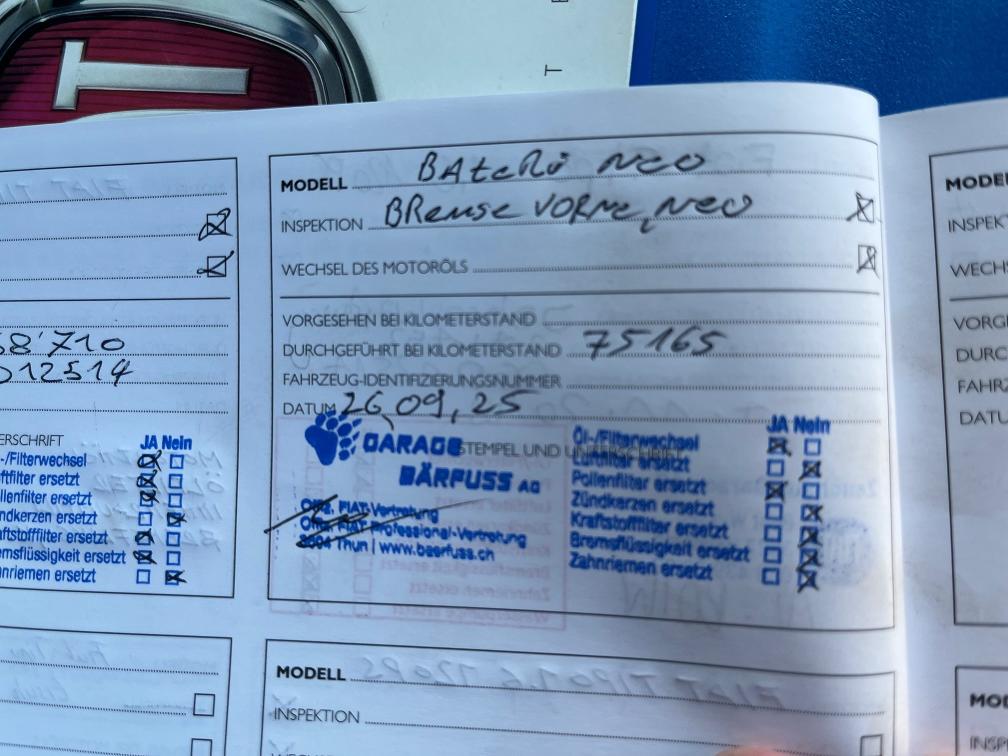 T
T
MODELL BAteRi Neo
INSPEKTION BRemse VORNe, Neo
WECHSEL DES MOTORÖLS
VORGESEHEN BEI KILOMETERSTAND
DURCHGEFÜHRT BEI KILOMETERSTAND 75165
FAHRZEUG-IDENTIFIZIERUNGSNUMMER
DATUM 26,09,25
STEMPEL UND UNTERSCHRIFT
GARAGE
BÄRFUSS AG
Offiz. FIAT-Vertretung
Offiz. FIAT Professional-Vertretung
3604 Thun | www.baerfuss.ch
JA Nein
Öl-/Filterwechsel
Luftfilter ersetzt
Pollenfilter ersetzt
Zündkerzen ersetzt
Kraftstofffilter ersetzt
Bremsflüssigkeit ersetzt
Zahnriemen ersetzt
68'710
012514
ERSCHRIFT
JA Nein
-/Filterwechsel
ftfilter ersetzt
ollenfilter ersetzt
ndkerzen ersetzt
aftstofffilter ersetzt
emsflüssigkeit ersetzt
hnriemen ersetzt
MODELL
INSPEKTION
MODEL
INSPEK
WECHS
VORG
DURC
FAHRZ
DATU
MOD
INSP